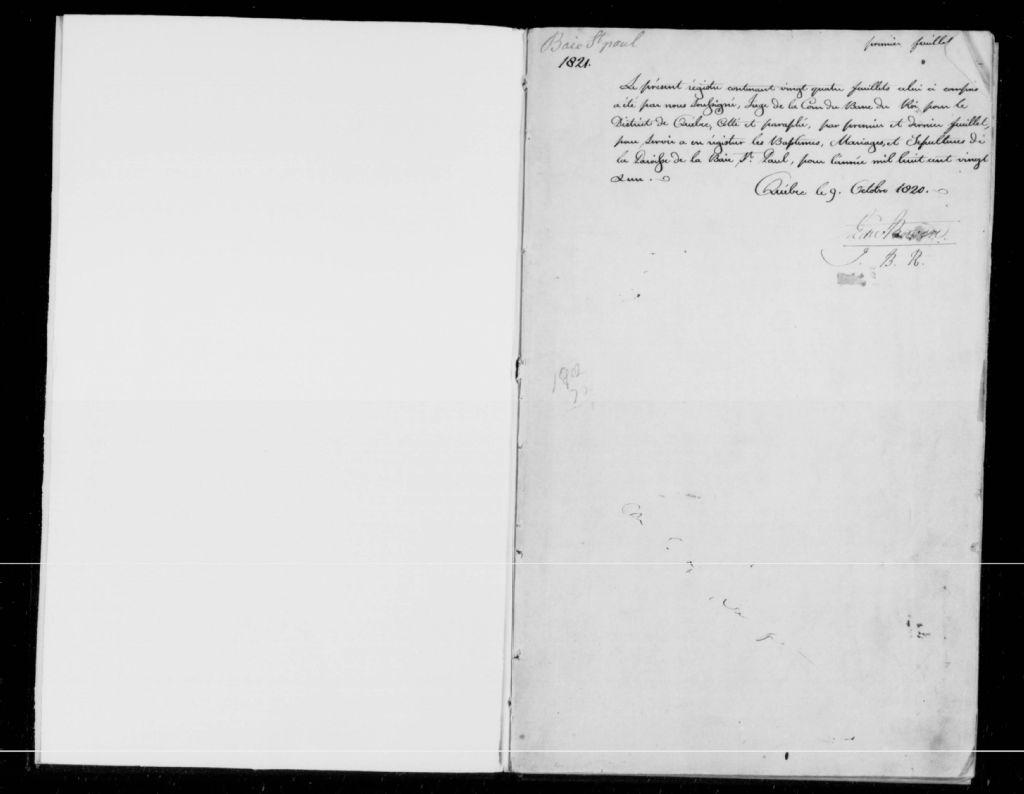 Baie St paul
premier feuillet
1821.
Le présent régistre contenant vingt quatre feuillets celui ci compris
a été par nous Soussigné, Juge de la Cour du Banc du Roi, pour le
District de Québec, Cotté et paraphé, par premier et dernier feuillet,
pour servir a en régistrer les Baptêmes, Mariages, et Sepultures de
la Paroisse de la Baie St. Paul, pour l'année mil huit cent vingt
& un.
Québec le 9. Octobre 1820.
J. B. R.